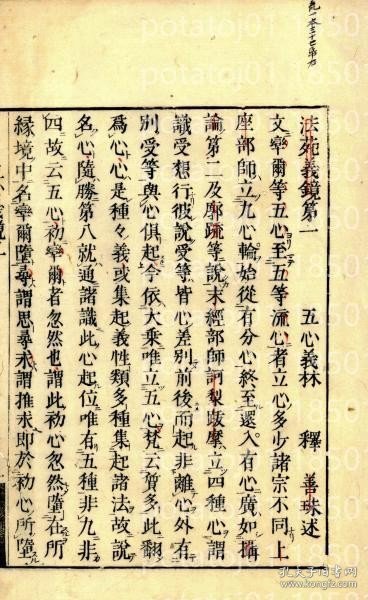 法苑義鏡第一　五心義林　釋　善珠述
文率爾等五心至五等流心者立心多少諸宗不同上
座部師立九心輪始從有分心終至還入有心廣如樞
論第二及廓疏等說末經部師訶梨䟦摩立四種心謂
識受想行彼說受等皆心差別前後而起非離心外有
別受等與心俱起今依大乗唯立五心梵云質多此翻
爲心心是種々義或集起義性類多種集起諸法故說
名心隨勝第八就通諸識此心起位唯有五種非九非
四故云五心初率爾者忽然也謂此初心忽然墮在所
緣境中名率爾墮尋謂思尋求謂推求即於初心所墮
孔夫子旧书网